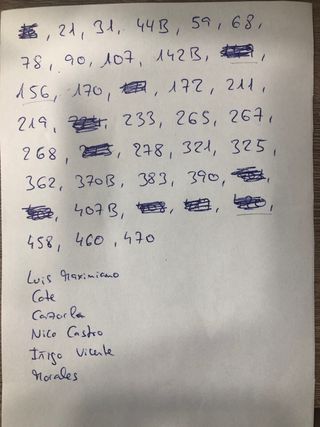 , 21, 31, 44B, 59, 68,
78, 90, 107, 142B, ,
156, 170, , 172, 211,
219, , 233, 265, 267,
268, , 278, 321, 325,
362, 370B, 383, 390, ,
, 407B, , , ,
458, 460, 470
Luis Maximiano
Cote
Cazorla
Nico Castro
Iñigo Vicente
Morales